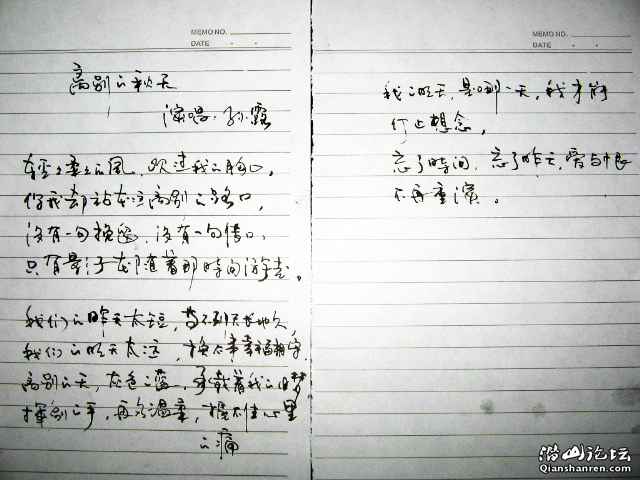 MEMO NO.
DATE
离别的秋天
演唱：孙露
轻轻柔柔的风，吹过我的胸口，
你我却站在这离别的路口，
没有一句挽留，没有一句借口，
只有影子在随着那时间游走。
我们的昨天太短，等不到天长地久，
我们的明天太远，换不来幸福相守，
离别的天，灰色的蓝，承载着我的旧梦
挥别的手，再多温柔，挡不住心里
的痛
MEMO NO.
DATE
我的明天，是哪一天，我才能
停止想念，
忘了时间，忘了昨天，爱与恨
不再重演。
潜山论坛
Qianshanren.com